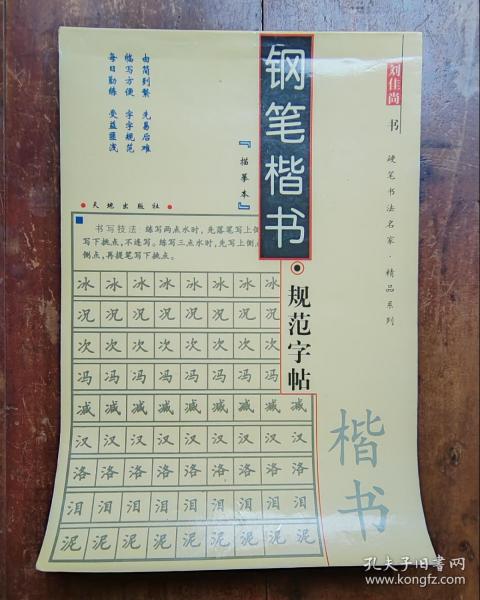 钢笔楷书
规范字帖
『描摹本』
刘佳尚 书
硬笔书法名家·精品系列
由简到繁 先易后难
临写方便 字字规范
每日勤练 受益匪浅
天地出版社
书写技法 练写两点水时,先落笔写上侧
写下挑点,不连写。练写三点水时,先写上侧点
侧点,再提笔写下挑点。
冰 冰 冰 冰 冰 冰 冰 冰
况 况 况 况 况 况 况 况
次 次 次 次 次 次 次 次
冯 冯 冯 冯 冯 冯 冯 冯
减 减 减 减 减 减 减 减 减
汉 汉 汉 汉 汉 汉 汉 汉 汉
洛 洛 洛 洛 洛 洛 洛 洛 洛
泪 泪 泪 泪 泪 泪 泪 泪 泪
泥 泥 泥 泥 泥 泥 泥 泥 泥
楷书
孔夫子旧书网
www.kongfz.com